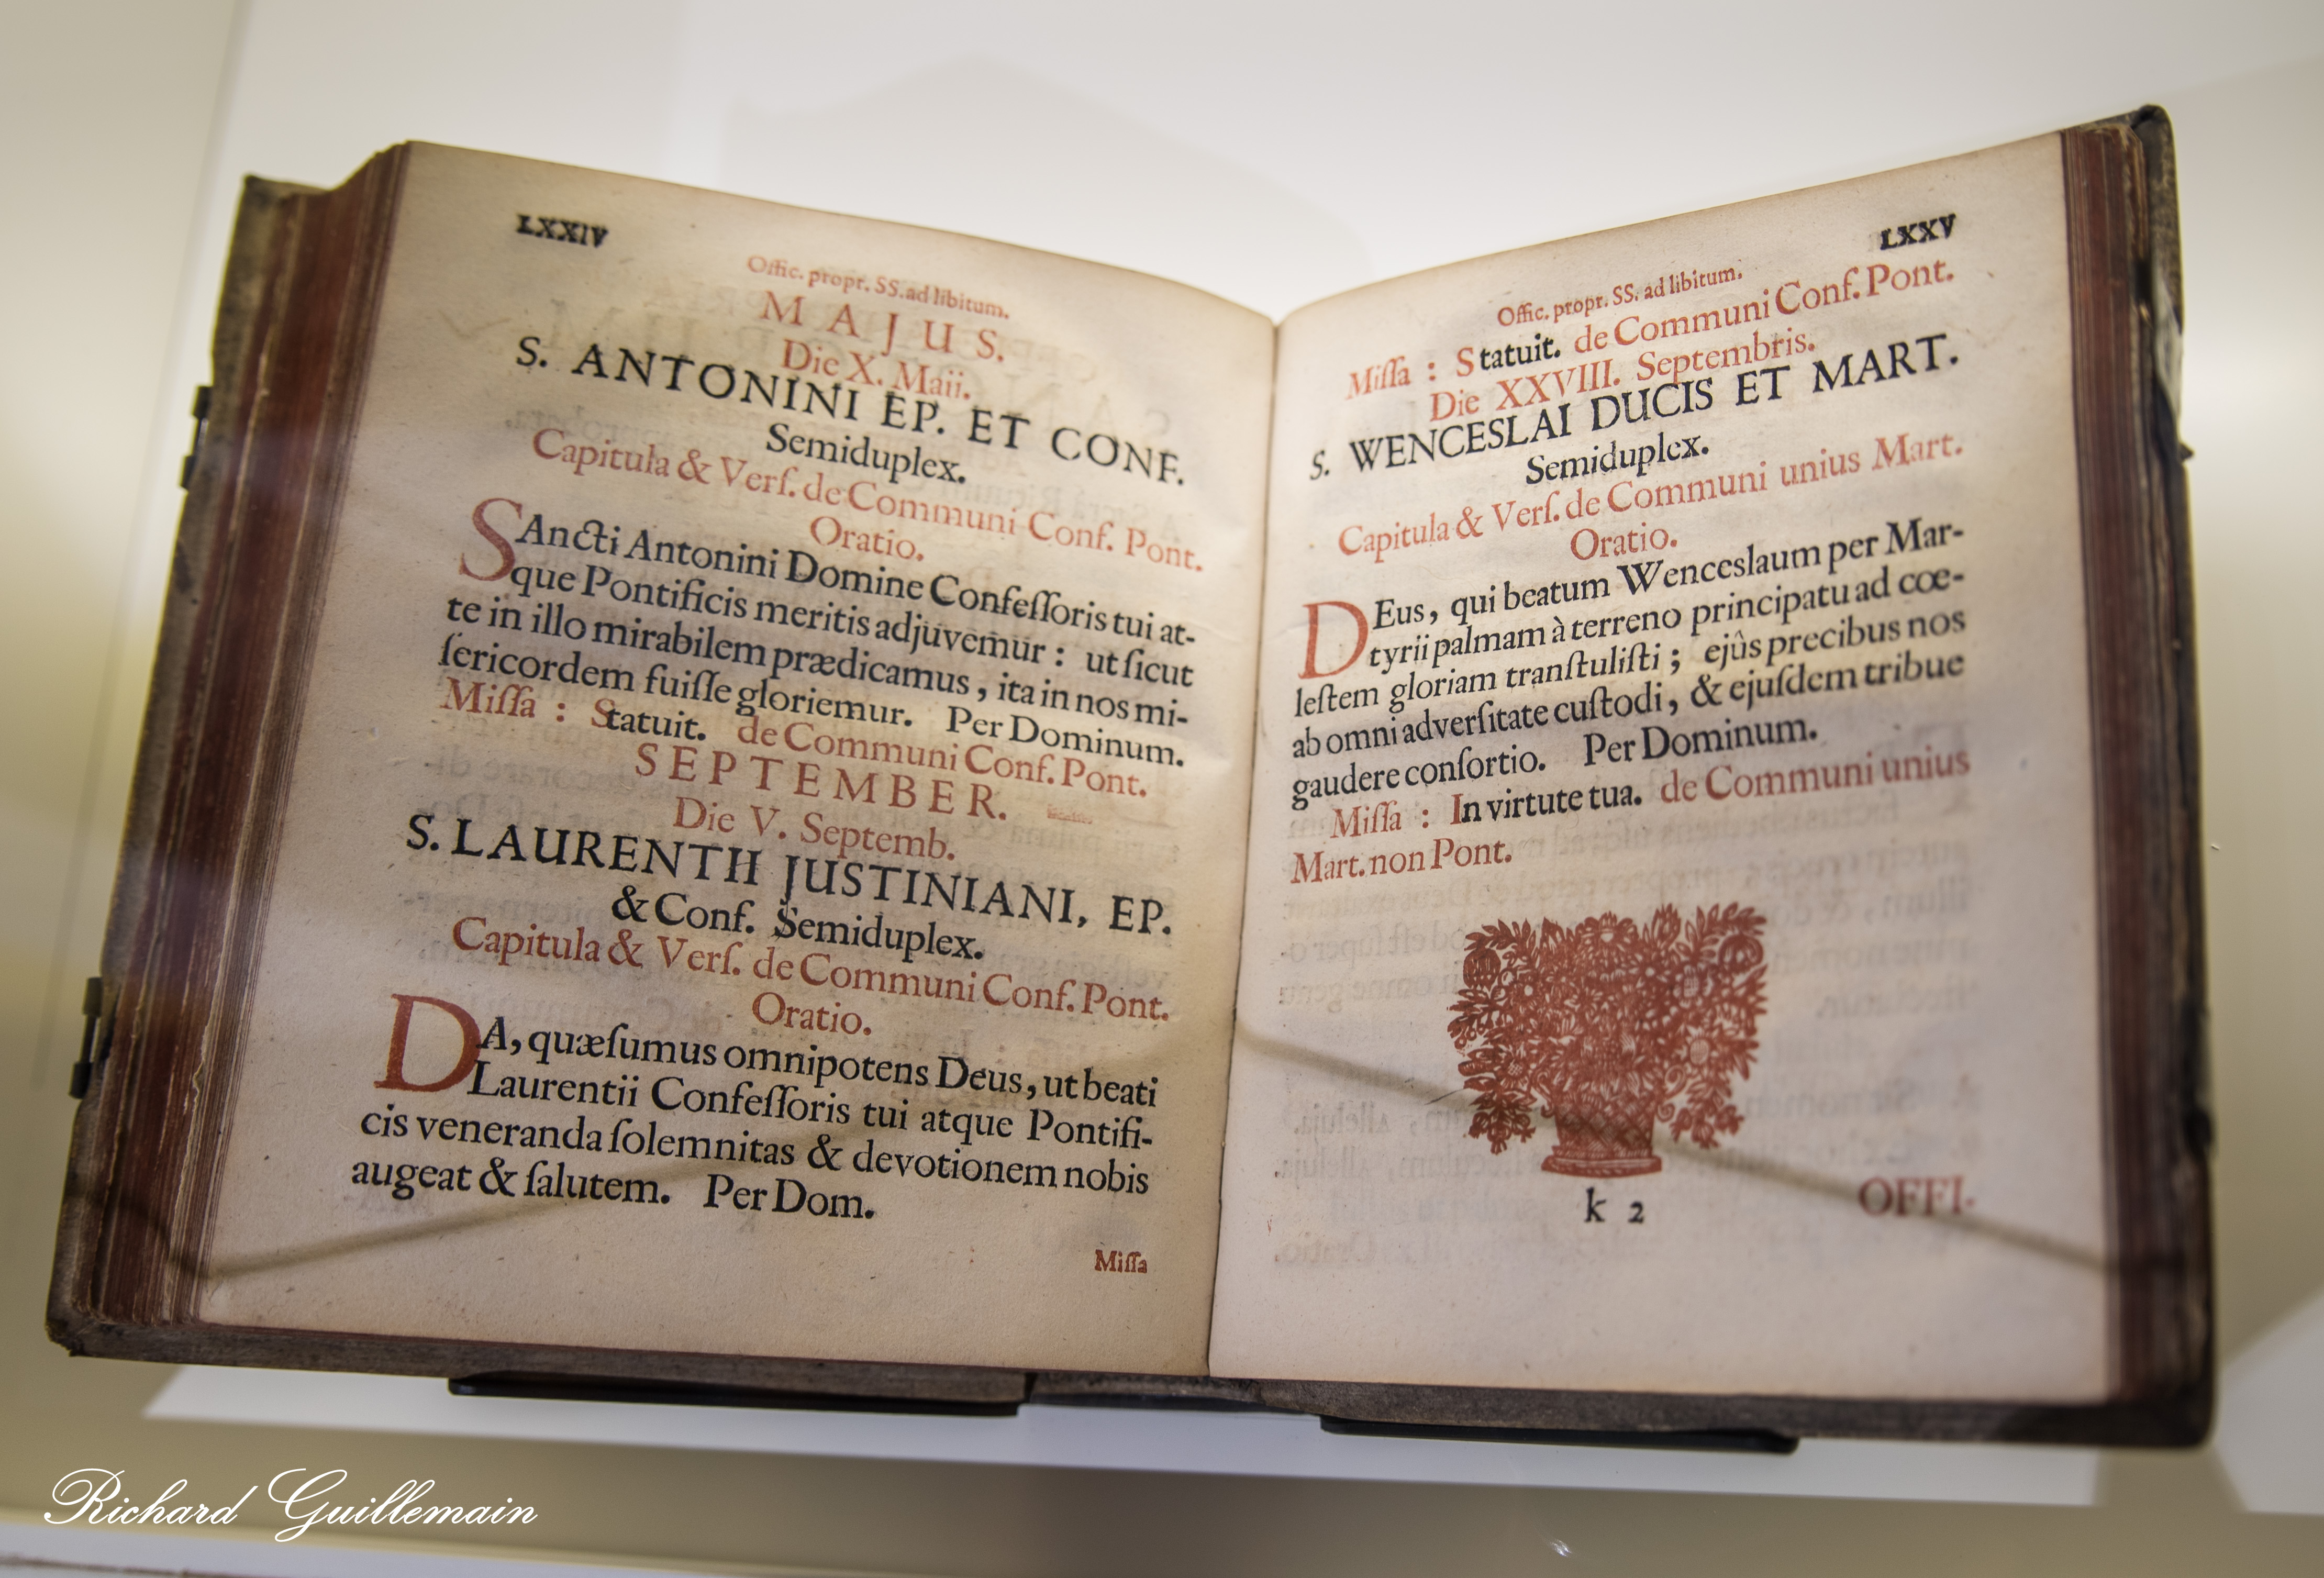 LXXIV
Offic. propr. SS. ad libitum.
MAJUS.
Die X. Maii.
S. ANTONINI EP. ET CONF.
Semiduplex.
Capitula & Verſ. de Communi Conf. Pont.
Oratio.
SAncti Antonini Domine Confeſſoris tui at-
que Pontificis meritis adjuvemur : ut ſicut
te in illo mirabilem prædicamus, ita in nos mi-
ſericordem fuiſſe gloriemur. Per Dominum.
Miſſa : Statuit. de Communi Conf. Pont.
SEPTEMBER.
Die V. Septemb.
S. LAURENTII JUSTINIANI, EP.
& Conf. Semiduplex.
Capitula & Verſ. de Communi Conf. Pont.
Oratio.
DA, quæſumus omnipotens Deus, ut beati
Laurentii Confeſſoris tui atque Pontifi-
cis veneranda ſolemnitas & devotionem nobis
augeat & ſalutem. Per Dom.
Miſſa
LXXV
Offic. propr. SS. ad libitum.
Miſſa : Statuit. de Communi Conf. Pont.
Die XXVIII. Septembris.
S. WENCESLAI DUCIS ET MART.
Semiduplex.
Capitula & Verſ. de Communi unius Mart.
Oratio.
DEus, qui beatum Wenceslaum per Mar-
tyrii palmam à terreno principatu ad cœ-
leſtem gloriam tranſtuliſti ; ejûs precibus nos
ab omni adverſitate cuſtodi, & ejuſdem tribue
gaudere conſortio. Per Dominum.
Miſſa : In virtute tua. de Communi unius
Mart. non Pont.
k 2
OFFI-
Richard Guillemain